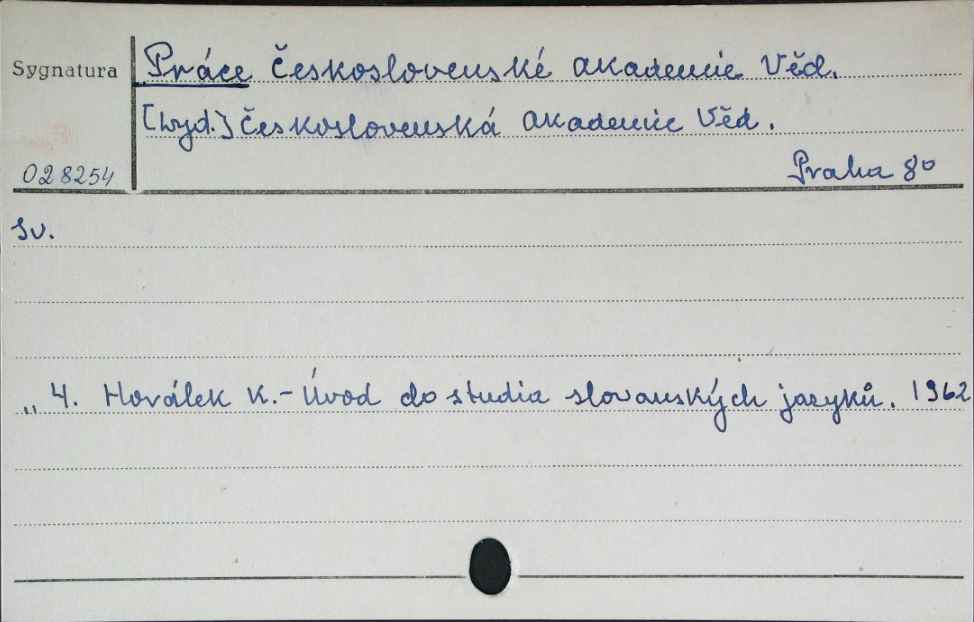 Sygnatura Práce Československé akademie Věd.
[Wyd.] Československá akademie Věd.
028254 Praha 8°
Sv.
„ 4. Horálek K.- Úvod do studia slovanských jazyků. 1962